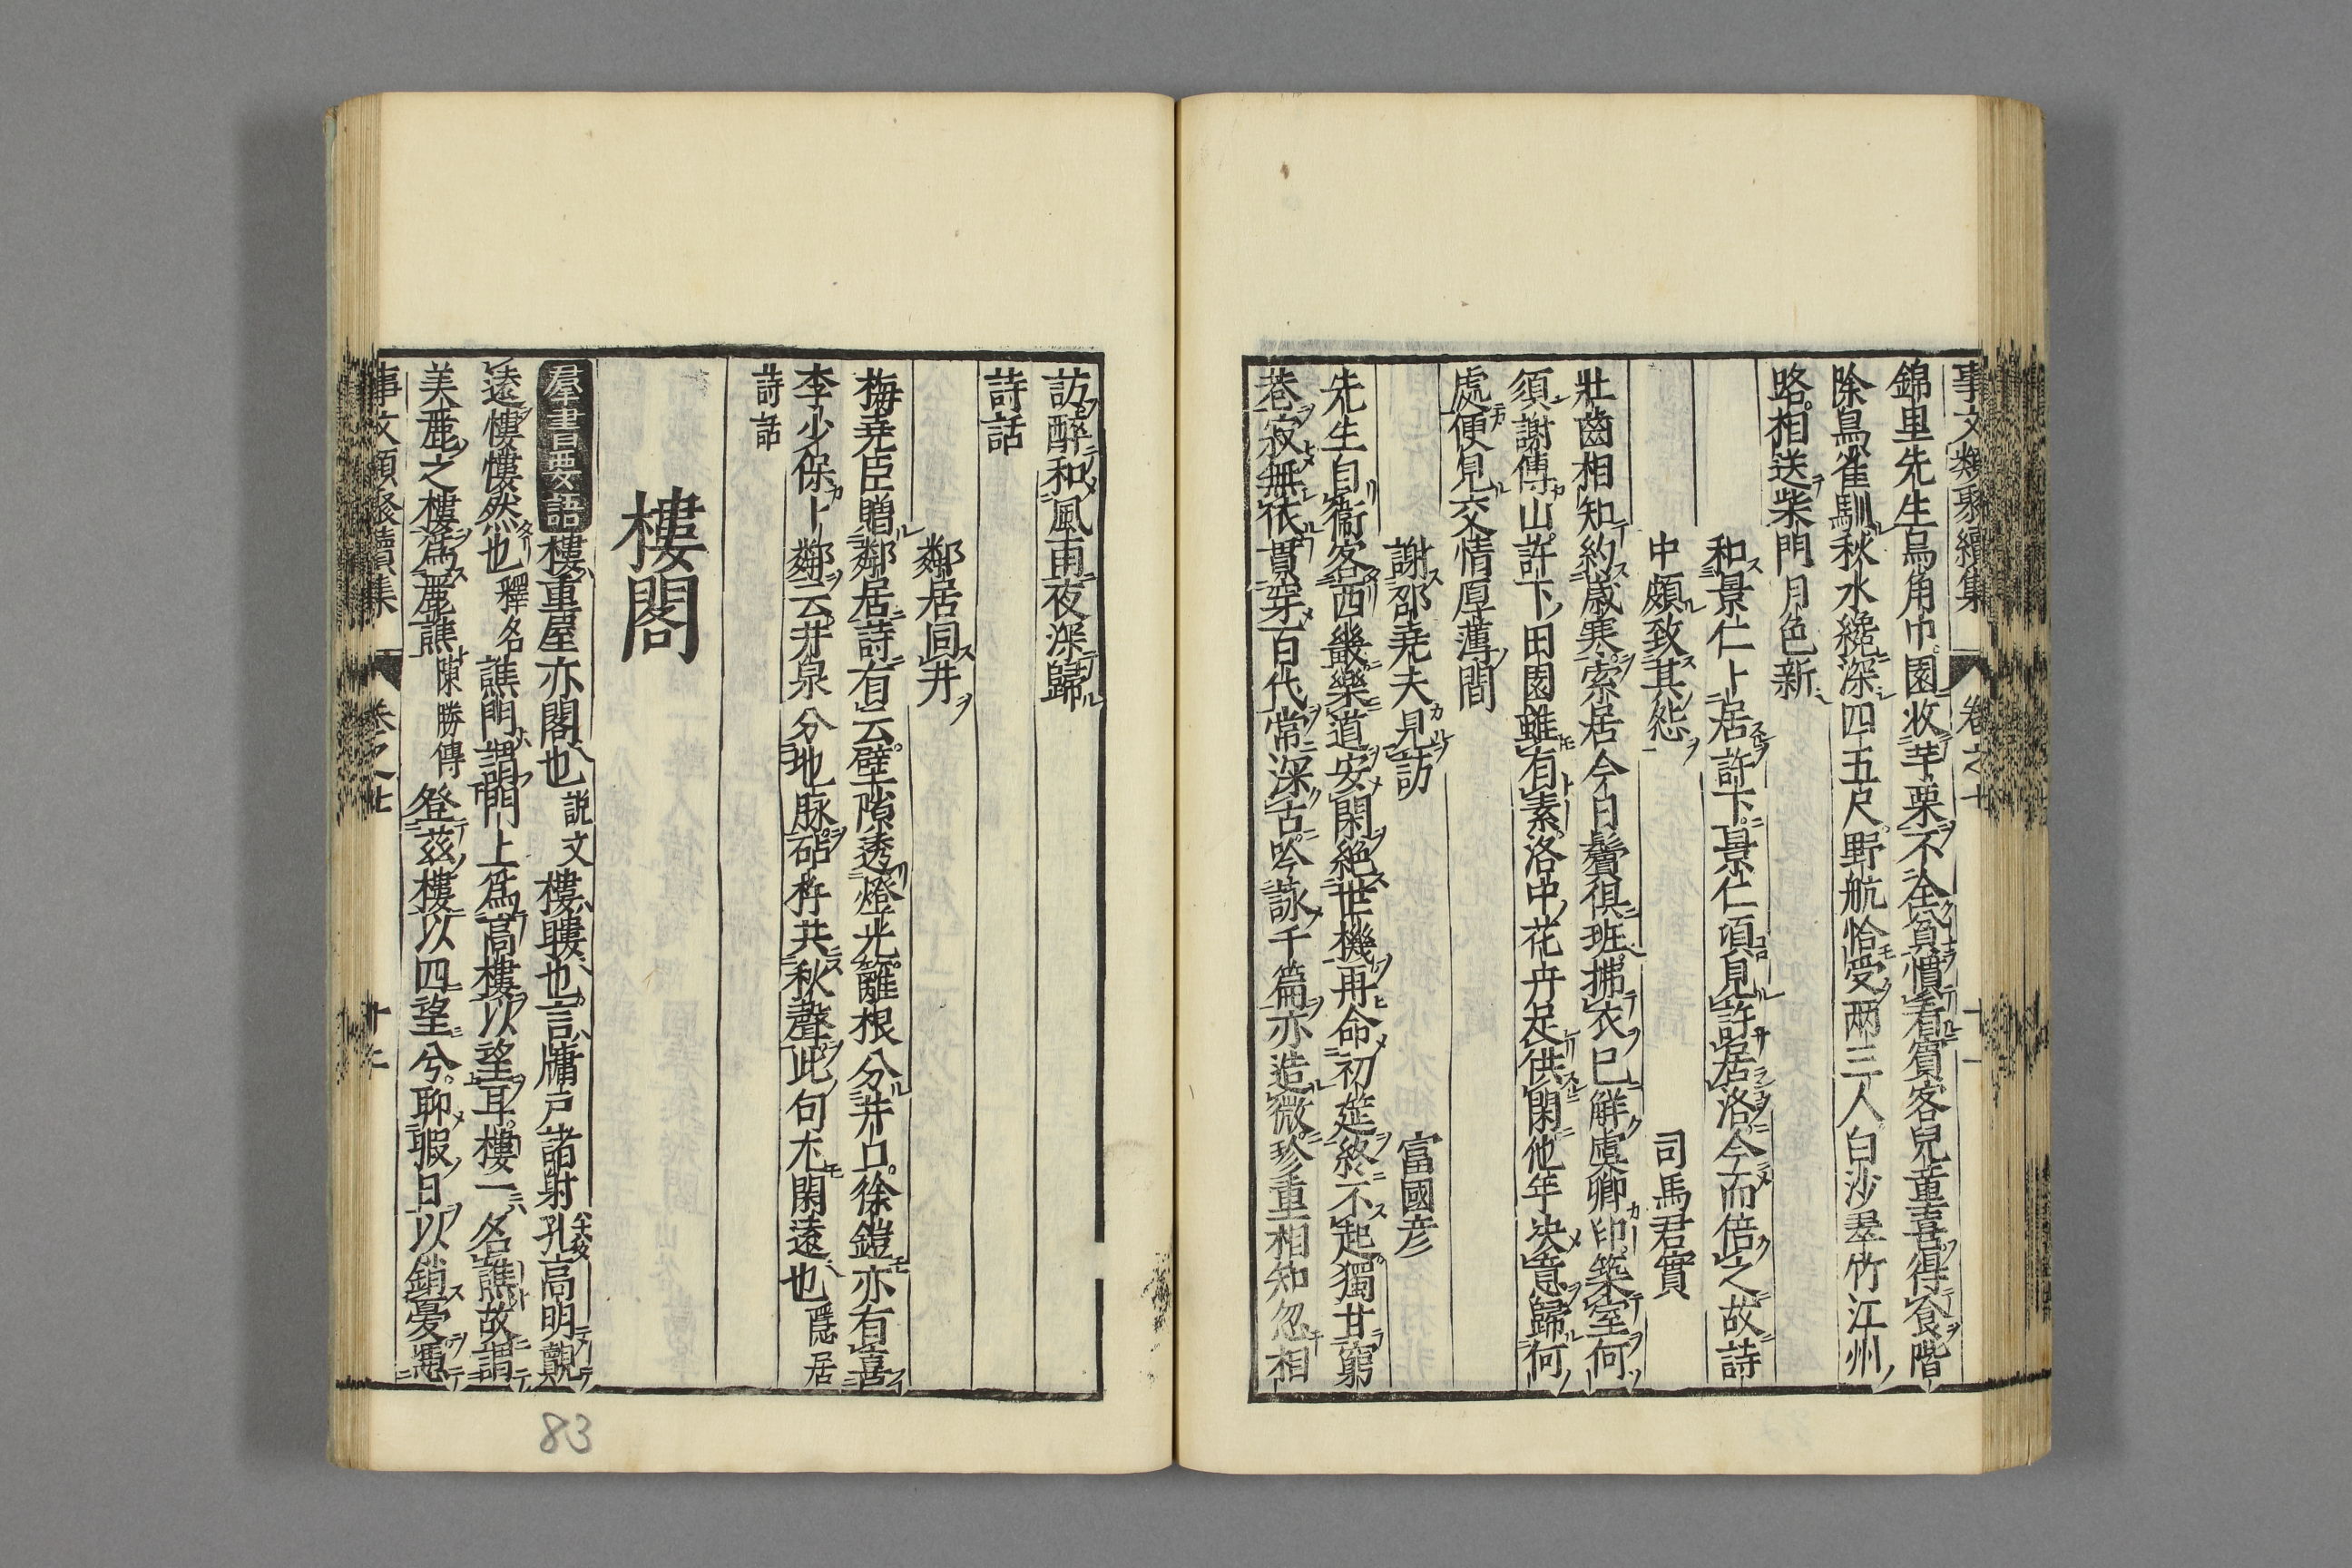 事文類聚續集 卷之十 十一
錦里先生烏角巾園收芋栗不全貧慣看賓客兒童喜得食階
除鳥雀馴秋水纔深四五尺野航恰受兩三人白沙翠竹江州
路相送柴門月色新
和景仁卜居許下景仁頃見許居洛今而倍之故詩
中頗致其怨 司馬君實
壯齒相知約歲寒索居今日鬢俱班拂衣已解虞卿印築室何
須謝傅山許下田園雖有素洛中花卉足供閑他年决意歸何
處便見交情厚薄間
謝邵堯夫見訪 富國彦
先生自衛客西畿樂道安閑絶世機再命初筵終不起獨甘窮
巷寂無依貫穿百代常深古吟詠千篇亦造微珍重相知忽相
訪醉和風雨夜深歸
詩話
鄰居同井
梅堯臣贈鄰居詩有云壁隙透燈光籬根分井口徐鎧亦有喜
李少保卜鄰云井泉分地脉砧杵共秋聲此句尤閑遠也 隱居
詩話
樓閣
羣書要語 樓重屋亦閣也 説文 樓䁖也言牖戸諸射孔高明觀
遠樓慺然也 釋名 譙門謂門上爲高樓以望耳樓一名譙故謂
美麗之樓爲麗譙 陳勝傳 登茲樓以四望兮聊暇日以銷憂憑
事文類聚續集 卷之七 十二
83